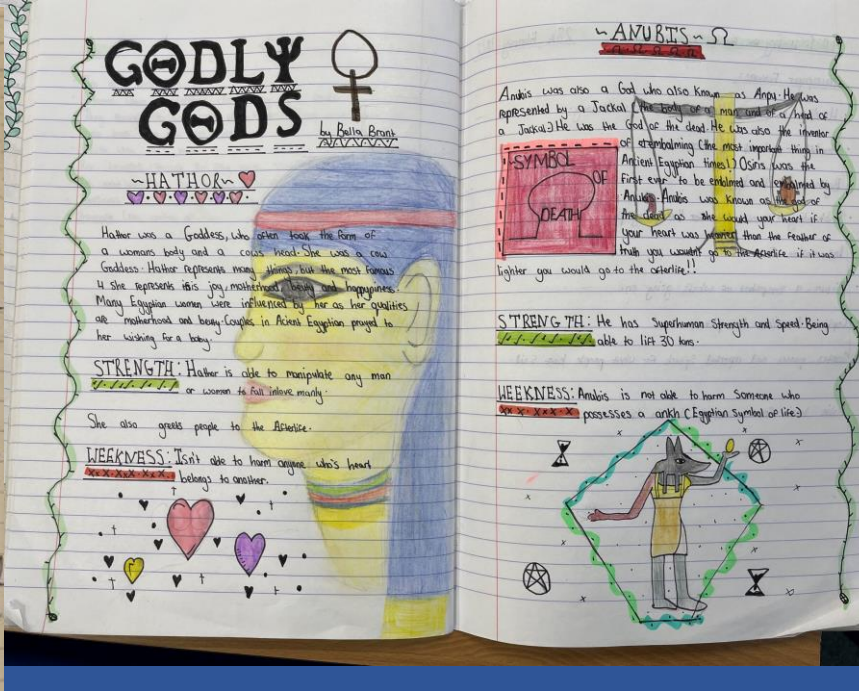 GODLY
GODS
by Bella Brant
~HATHOR~
Hathor was a Goddess, who often took the form of
a womans body and a cows head. She was a cow
Goddess. Hathor represents many things, but the most famous
4 She represents is joy, motherhood, beuty and happyness.
Many Egyptian women were influenced by her as her qualities
are motherhood and beuty. Couples in Acient Egyptian prayed to
her wishing for a baby.
STRENGTH: Hathor is able to manipulate any man
or woman to fall inlove manly.
She also greets people to the Afterlise.
WEEKNESS: Isn't able to harm anyone who's heart
belongs to another.
~ANUBIS~ Ω
Anubis was also a God who also Known as Anpu. He was
represented by a Jackal (the body of a man and of a head of
a Jackal.) He was the God of the dead. He was also the inventor
of embalming (the most important thing in
Ancient Egyptian times!) Osiris was the
first ever to be embalmed and embalmed by
Anubis. Anubis was known as the god of
the dead as would your heart if
your heart was heavier than the feather of
truth you wouldn't go to the Afterlise if it was
lighter you would go to the afterlise!!
SYMBOL
OF
DEATH
STRENGTH: He has Superhuman Strength and Speed. Being
able to lift 30 tons.
WEEKNESS: Anubis is not able to harm Someone who
possesses a ankh (Egyptian Symbol of life)